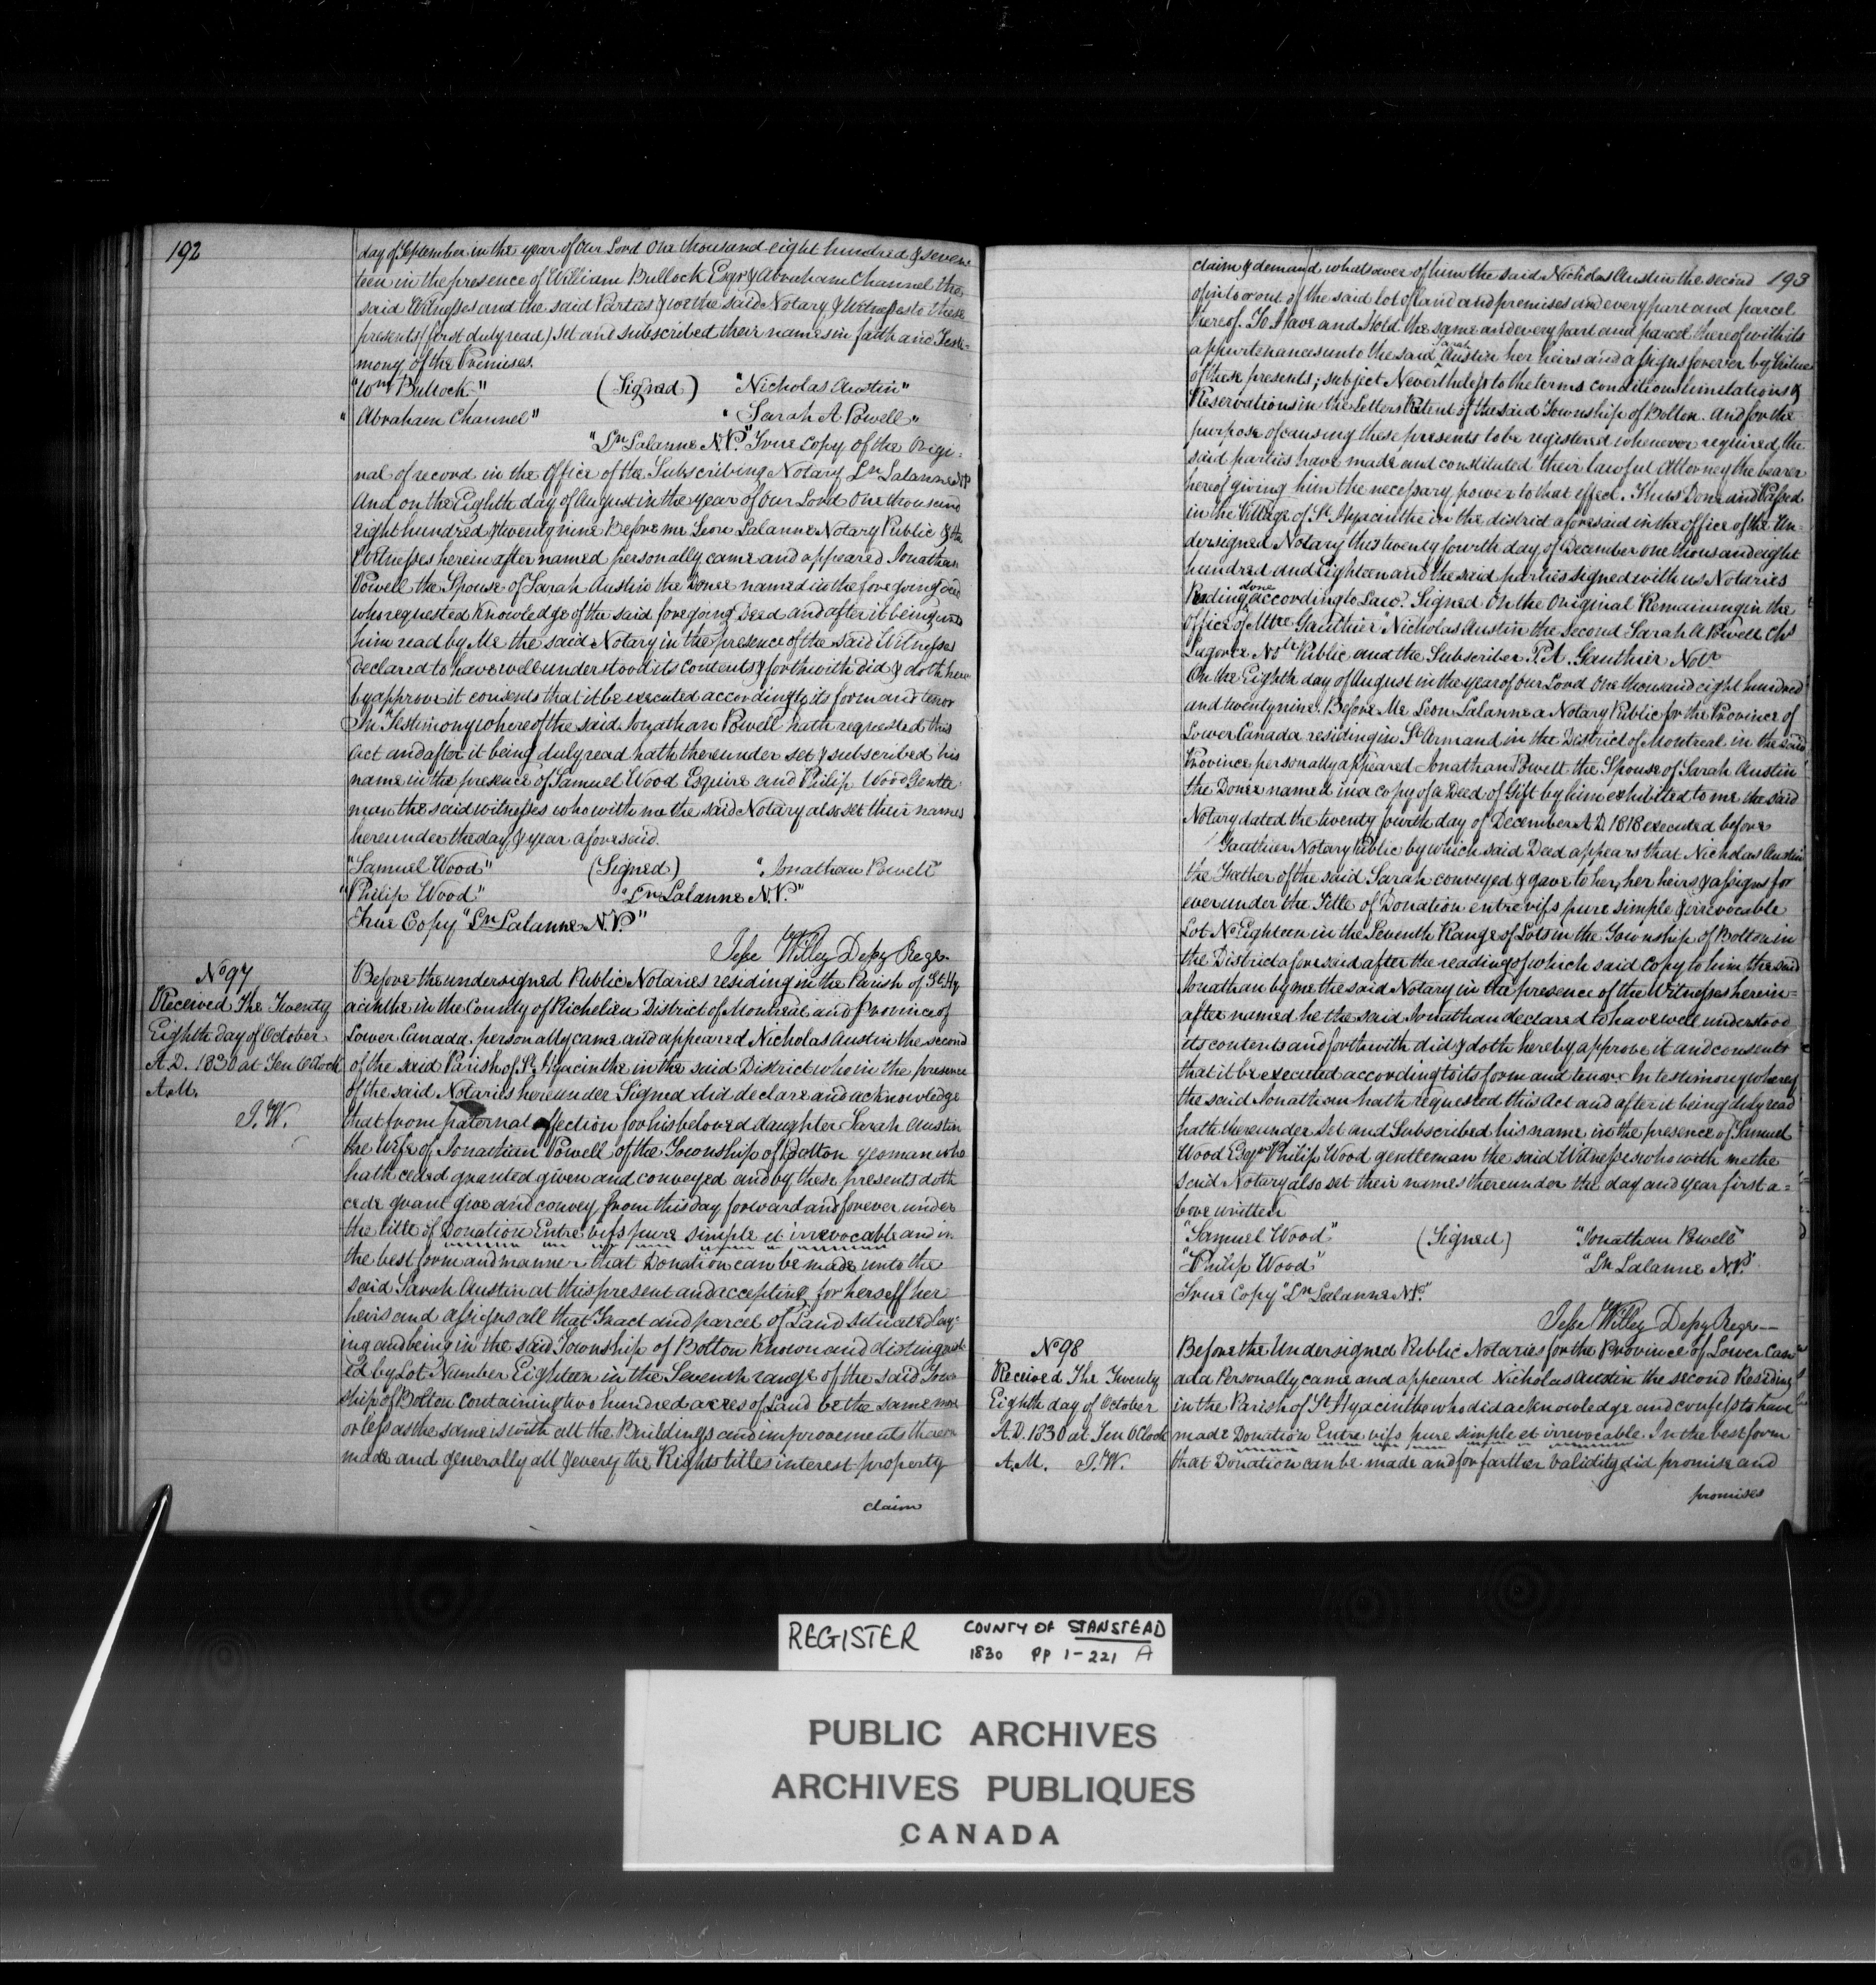 192
day of September in the year of Our Lord One thousand eight hundred & seven=
teen in the presence of William Bullock Esqr & Abraham Channel the
said Witnesses and the said Parties & we the said Notary & Witnesses to these
presents (first duly read) set and subscribed their names in faith and Testi=
mony of the Premises.
"Wm Bullock" (Signed) "Nicholas Austin"
"Abraham Channel" "Sarah A Powell"
"Ln Lalanne N.P." True Copy of the Origi=
nal of record in the Office of the Subscribing Notary Ln Lalanne NP
And on the Eighth day of August in the year of Our Lord One thousand
eight hundred & twenty nine Before me Leon Lalanne Notary Public & the
Witnesses herein after named personally came and appeared Jonathan
Powell the Spouse of Sarah Austin the Donee named in the foregoing deed
who requested Knowledge of the said foregoing Deed and after it being unto
him read by Me the said Notary in the presence of the said Witnesses
declared to have well understood its contents & forthwith did & doth here
by approve it consents that it be executed according to its form and tenor
In Testimony whereof the said Jonathan Powell hath requested this
Act and after it being duly read hath thereunder set & subscribed his
name in the presence of Samuel Wood Esquire and Philip Wood Gentle
man the said witnesses who with me the said Notary also set their names
hereunder the day & year aforesaid.
"Samuel Wood" (Signed) "Jonathan Powell"
"Philip Wood" "Ln Lalanne N.P."
True Copy "Ln Lalanne N.P."
Jesse Willey Depy Regr.
No 97
Received The Twenty
Eighth day of October
A.D. 1830 at Ten OClock
A.M.
J.W.
Before the undersigned Public Notaries residing in the Parish of St Hy
acinthe in the County of Richelieu District of Montreal and Province of
Lower Canada. personally came and appeared Nicholas Austin the second
of the said Parish of St Hyacinthe in the said District who in the presence
of the said Notaries hereunder Signed did declare and acknowledge
that from paternal affection for his beloved daughter Sarah Austin
the Wife of Jonathan Powell of the Township of Bolton yeoman who
hath ceded granted given and conveyed and by these presents doth
cede grant give and convey from this day forward and forever under
the title of Donation Entre vifs pure simple et irrevocable and in
the best form and manner that Donation can be made unto the
said Sarah Austin at this present and accepting for herself her
heirs and assigns all that Tract and parcel of Land situate lay=
ing and being in the said Township of Bolton Known and distinguish
ed by Lot Number Eighteen in the Seventh range of the said Town
ship of Bolton Containing two hundred acres of Land be the same more
or less as the same is with all the Buildings and improvements thereon
made and generally all & every the Rights titles interest property
claim
193
claim & demand whatsoever of him the said Nicholas Austin the second
of into or out of the said lot of land and premises and every part and parcel
thereof. To Have and Hold the same and every part and parcel thereof with its
appurtenances unto the said Sarah Austin her heirs and assigns forever by Virtue
of these presents; subject Nevertheless to the terms conditions limitations &
Reservations in the Letters Patent of the said Township of Bolton. And for the
purpose of causing these presents to be registered whenever required, the
said parties have made and constituted their lawful Attorney the bearer
hereof giving him the necessary power to that effect. Thus Done and Passed
in the Village of St Hyacinthe in the district aforesaid in the office of the Un=
dersigned Notary this twenty fourth day of December one thousand eight
hundred and Eighteen and the said parties signed with us Notaries
Reading done according to Law. Signed On the Original Remaining in the
office of Mtre Gauthier "Nicholas Austin the second Sarah A Powell Chs
Public and the Subscriber P.A. Gauthier Notr
On the Eighth day of August in the year of our Lord One thousand eight hundred
and twenty nine. Before Me Leon Lalanne a Notary Public for the Province of
Lower Canada residing in St Armand in the District of Montreal in the said
Province personally appeared Jonathan Powell the Spouse of Sarah Austin
the Donee named in a copy of a Deed of Gift by him exhibited to me the said
Notary dated the twenty fourth day of December A.D. 1818 executed before
Gauthier Notary Public by which said Deed appears that Nicholas Austin
the Father of the said Sarah conveyed & gave to her, her heirs & assigns for
ever under the Title of Donation entre vifs pure simple & irrevocable
Lot No Eighteen in the Seventh Range of Lots in the Township of Bolton in
the District aforesaid after the reading of which said Copy to him the said
Jonathan by me the said Notary in the presence of the Witnesses herein=
after named he the said Jonathan declared to have well understood
its contents and forthwith did & doth hereby approve it and consents
that it be executed according to its form and tenor. In testimony whereof
the said Jonathan hath requested this Act and after it being duly read
hath thereunder Set and Subscribed his name in the presence of Samuel
Wood Esqr Philip Wood gentleman the said Witnesses who with me the
said Notary also set their names thereunder the day and year first a=
bove written
"Samuel Wood" (Signed) "Jonathan Powell"
"Philip Wood" "Ln Lalanne N.P."
True Copy "Ln Lalanne N.P."
Jesse Willey Depy Regr
No 98
Received The Twenty
Eighth day of October
A.D. 1830 at Ten OClock
A.M. J.W.
Before the Undersigned Public Notaries for the Province of Lower Can
ada Personally came and appeared Nicholas Austin the second Residing
in the Parish of St Hyacinthe who did acknowledge and confess to have
made Donation Entre vifs pure simple et irrevocable. In the best form
that Donation can be made and for farther validity did promise and
promises
REGISTER COUNTY OF STANSTEAD
1830 PP 1-221 A
PUBLIC ARCHIVES
ARCHIVES PUBLIQUES
CANADA